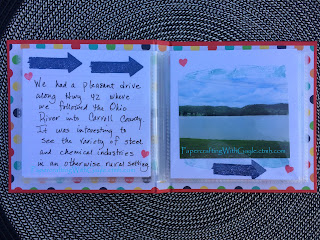 We had a pleasant drive
along Hwy 42 where
we followed the Ohio
River into Carroll County.
It was interesting to
see the variety of steel
and chemical industries
in an otherwise rural setting.
PapercraftingWithGayle.ctmh.com